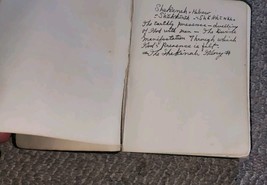 Shekinah - Hebrew
The earthly presence - dwelling
of God with men - The Divine
manifestation through which
God's presence is felt -
The Shekinah Glory